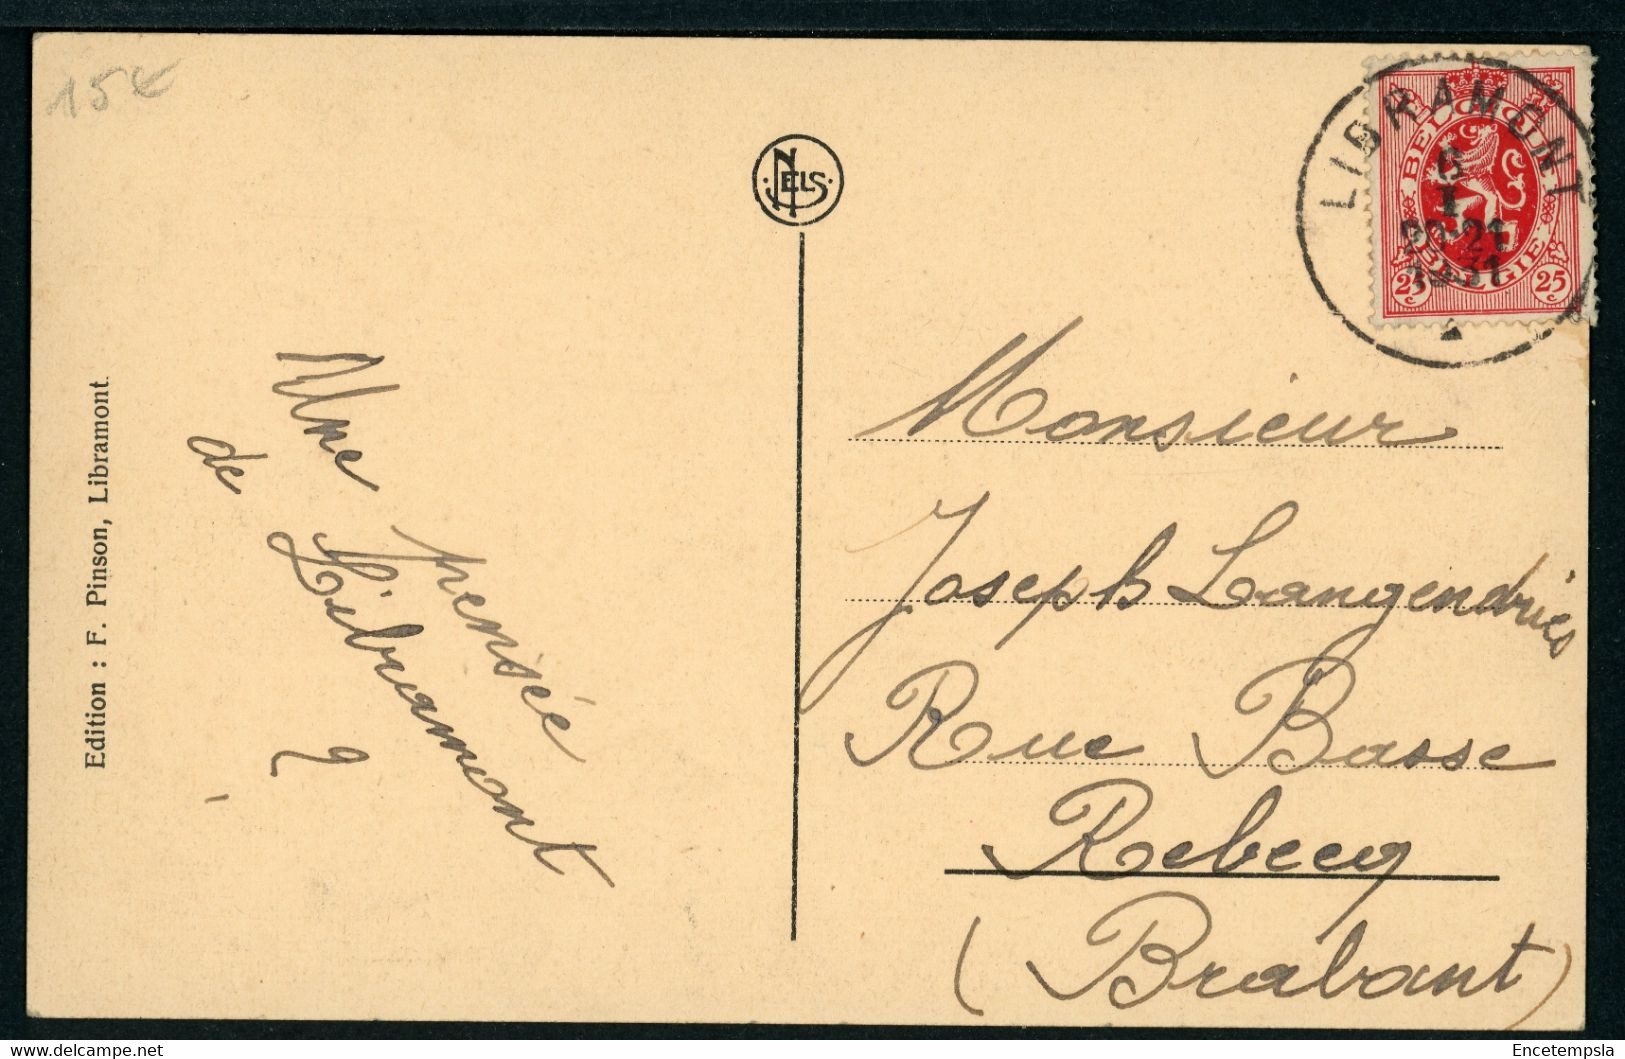 15€
NELS
LIBRAMONT
6
I
20-21
31
BELGIQUE
BELGIE
25 c
25 c
Edition : F. Pinson, Libramont.
Une pensée
de Libramont
?
Monsieur
Joseph Langendries
Rue Basse
Rebecq
(Brabant)
Encetempsla